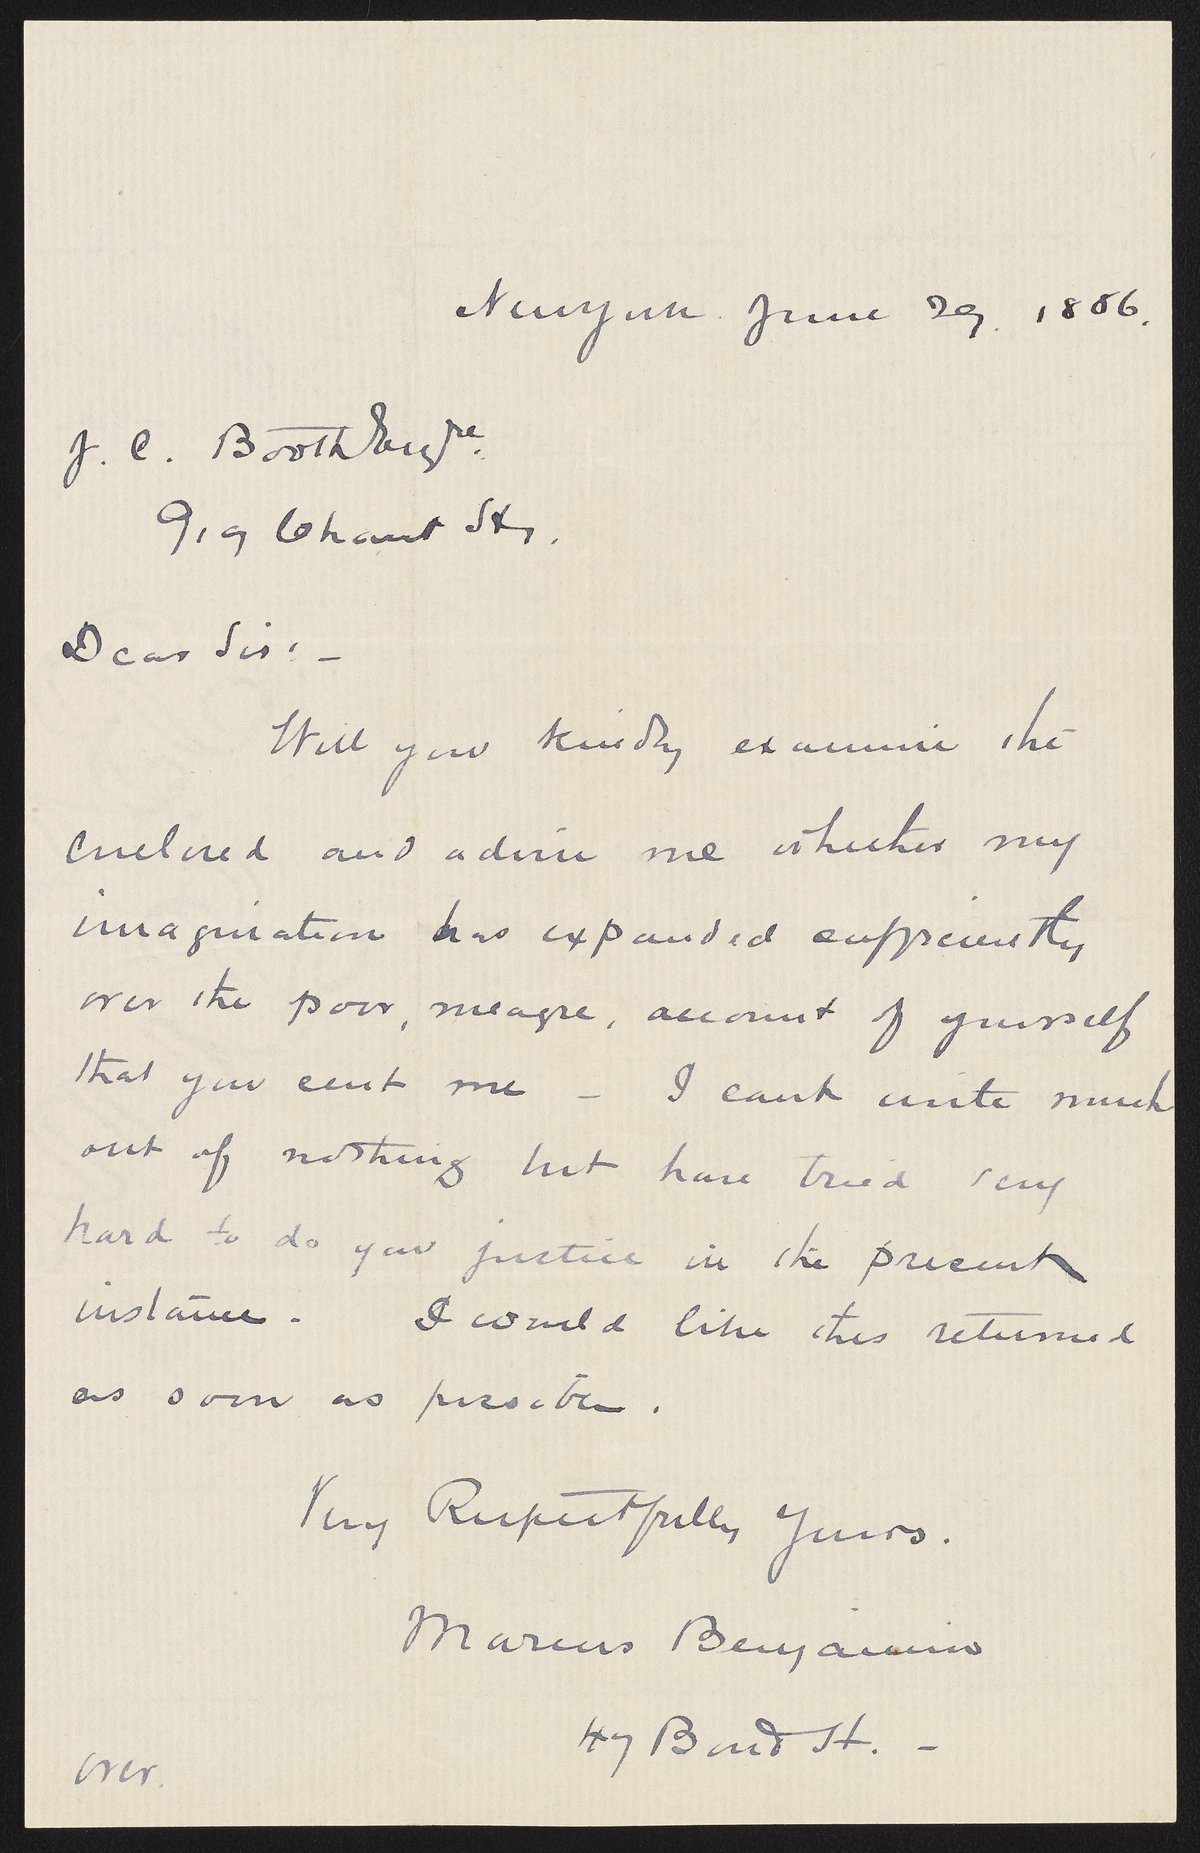 New York June 29. 1886.
J. C. Booth Esqre.
919 Chant St.
Dear Sir: -
Will you kindly examine the
enclosed and advise me whether my
imagination has expanded sufficiently
over the poor, meagre, account of yourself
that you sent me - I cant write much
out of nothing but have tried very
hard to do you justice in the present
instance. I would like this returned
as soon as possible.
Very Respectfully Yours.
Marcus Benjamin
47 Bond St. -
over.